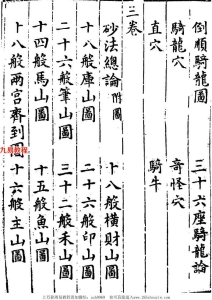 倒順騎龍圖　三十六座騎龍論
騎龍穴　奇怪穴
直穴　騎牛
三卷
砂法總論 附圖　十八般橫財山圖
十八般庫山圖　二十六般印山圖
二十六般筆山圖　三十二般禾山圖
十四般馬山圖　十五般魚山圖
十八般兩宮齊到　十六般主山圖